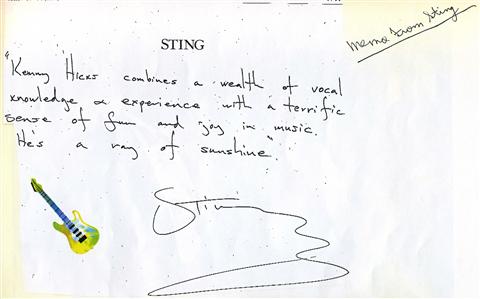 Memo from Sting
STING
"Kenny Hicks combines a wealth of vocal
knowledge & experience with a terrific
sense of fun and joy in music.
He's a ray of sunshine"
Sting